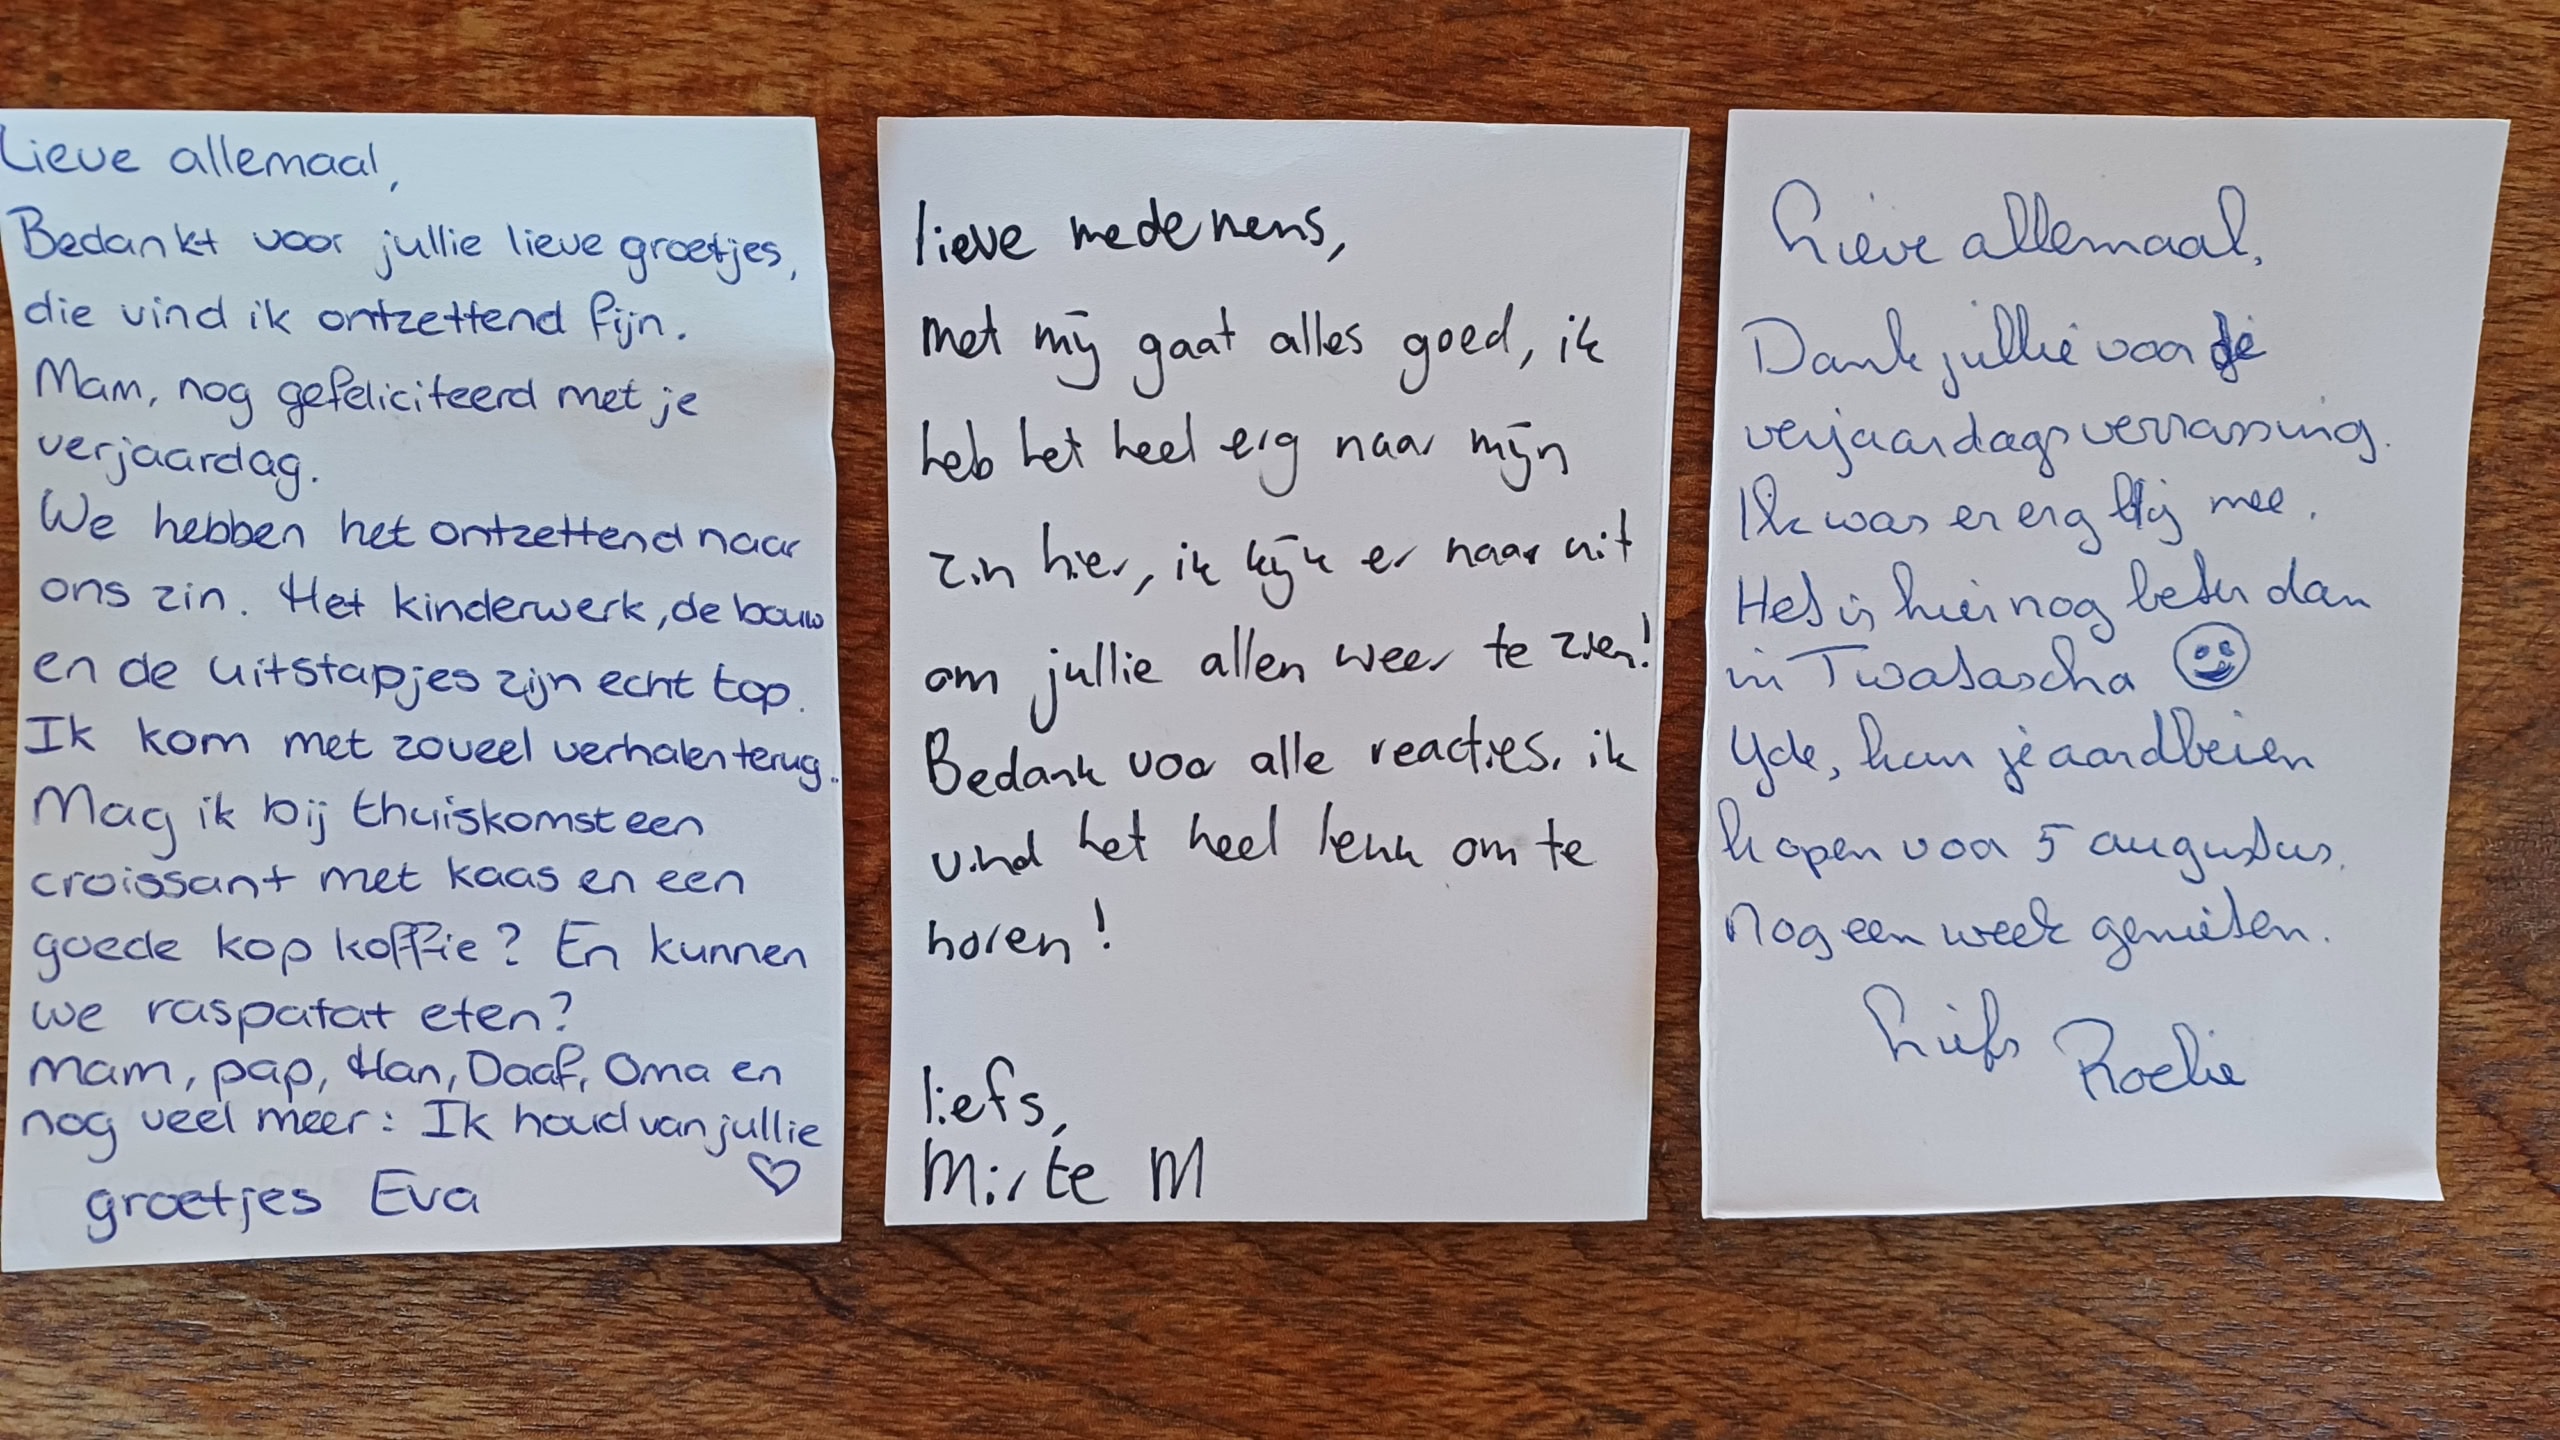 Lieve allemaal,
Bedankt voor jullie lieve groetjes,
die vind ik ontzettend fijn.
Mam, nog gefeliciteerd met je
verjaardag.
We hebben het ontzettend naar
ons zin. Het kinderwerk, de bouw
en de uitstapjes zijn echt top.
Ik kom met zoveel verhalen terug.
Mag ik bij thuiskomst een
croissant met kaas en een
goede kop koffie? En kunnen
we raspatat eten?
Mam, pap, Han, Daaf, Oma en
nog veel meer: Ik houd van jullie
♡
groetjes Eva
lieve mede mens,
met mij gaat alles goed, ik
heb het heel erg naar mijn
zin hier, ik kijk er naar uit
om jullie allen weer te zien!
Bedank voor alle reacties. ik
vind het heel leuk om te
horen!
liefs,
Mirte M
Lieve allemaal,
Dank jullie voor de
verjaardagsverrassing.
Ik was er erg blij mee.
Het is hier nog beter dan
in Twatascha ☺
Yde, kun je aardbeien
kopen voor 5 augustus.
Nog een week genieten.
Liefs Roelie